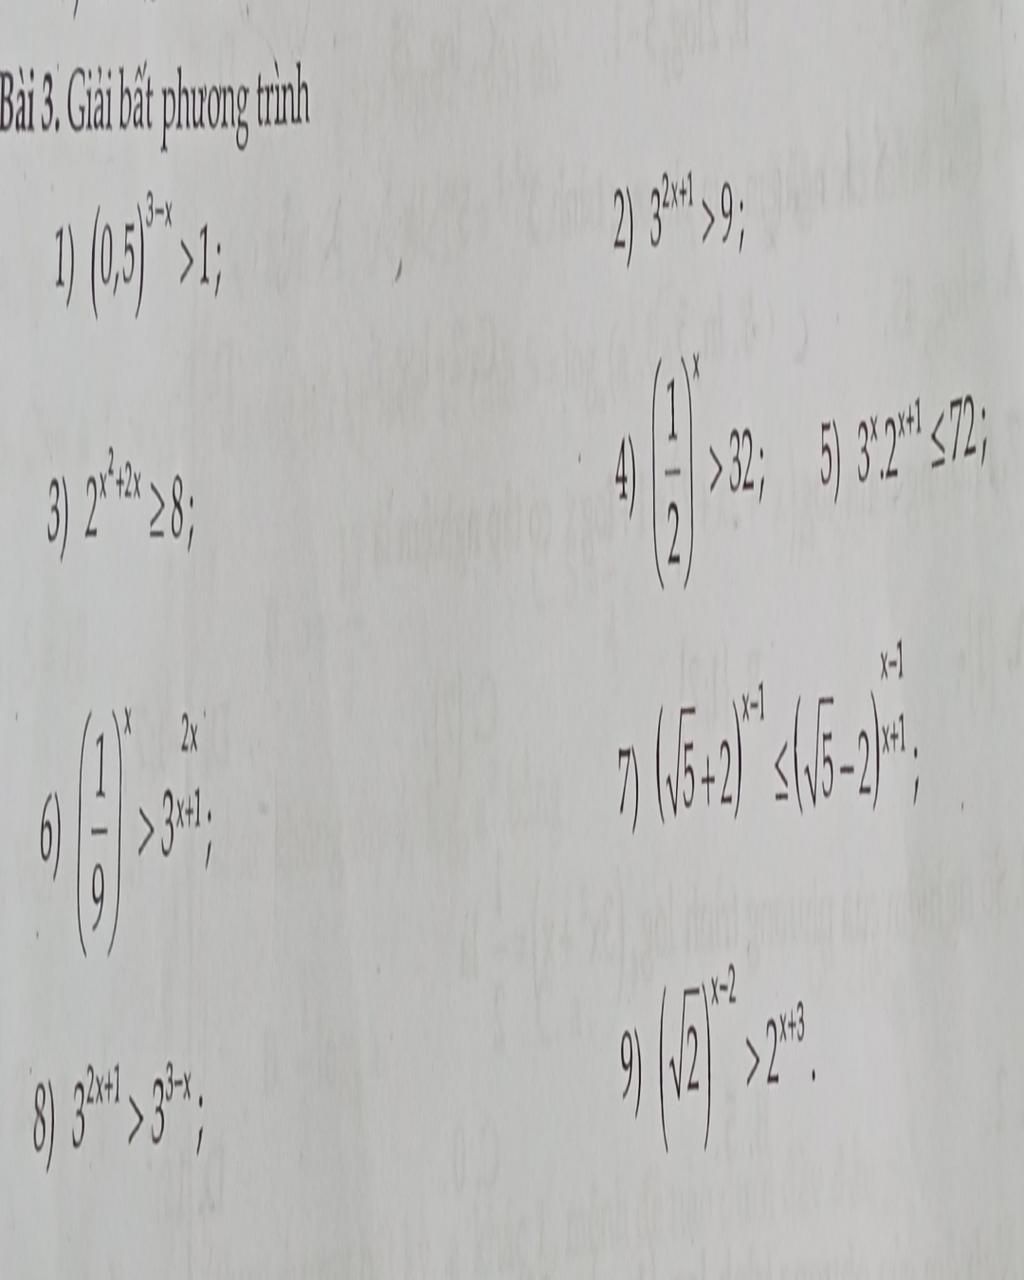 Bài 3. Giải bất phương trình
1) (0,5)^{3-x} > 1;
2) 3^{2x+1} > 9;
3) 2^{x^2+2x} ≥ 8;
4) (1/2)^x > 32;
5) 3^x.2^{x+1} ≤ 72;
6) (1/9)^x > 3^{2x/(x+1)};
7) (√5+2)^{x-1} ≤ (√5-2)^{(x-1)/(x+1)};
8) 3^{2x+1} > 3^{3-x};
9) (√2)^{x-2} > 2^{x+3}.